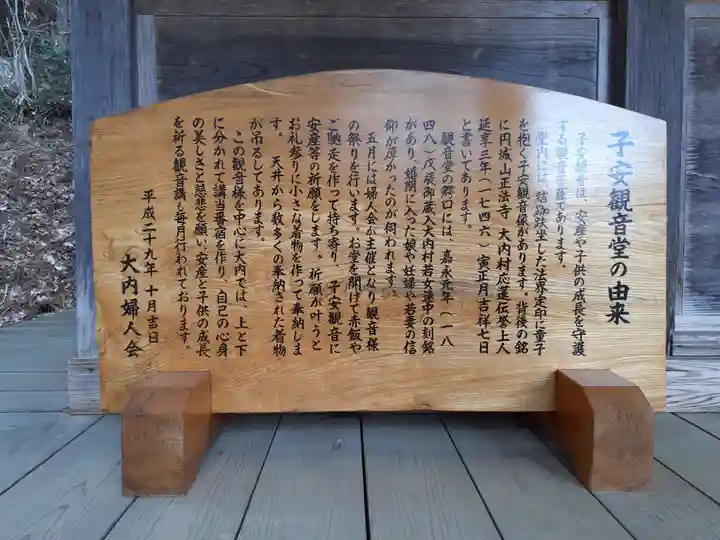 子安観音堂の由来
子安観音は、安産や子供の成長を守護
する観音菩薩であります。
堂内には、結跏趺坐した法界定印に童子
を抱く子安観音像があります。背後の銘
に円城山正法寺 大内村応蓮伝誉上人
延享三年(一七四六)寅正月吉祥七日
と書いてあります。
観音堂の鰐口には、嘉永元年(一八
四八)戊辰御蔵入大内村若女連中の刻銘
があり、婚期に入った娘や妊婦や若妻の信
仰が厚かったのが伺われます。
五月には婦人会が主催となり観音様
の祭りを行います。お堂を開けて赤飯や
ご馳走を作って持ち寄り、子安観音に
安産等の祈願をします。祈願が叶うと
お礼参りに小さな着物を作って奉納しま
す。 天井から数多くの奉納された着物
が吊るしてあります。
この観音様を中心に大内では、上と下
に分かれて講当番宿を作り、自己の心身
の美しさと慈悲を願い、安産と子供の成長
を祈る観音講も毎月行われております。
平成二十九年 十月吉日
大内婦人会